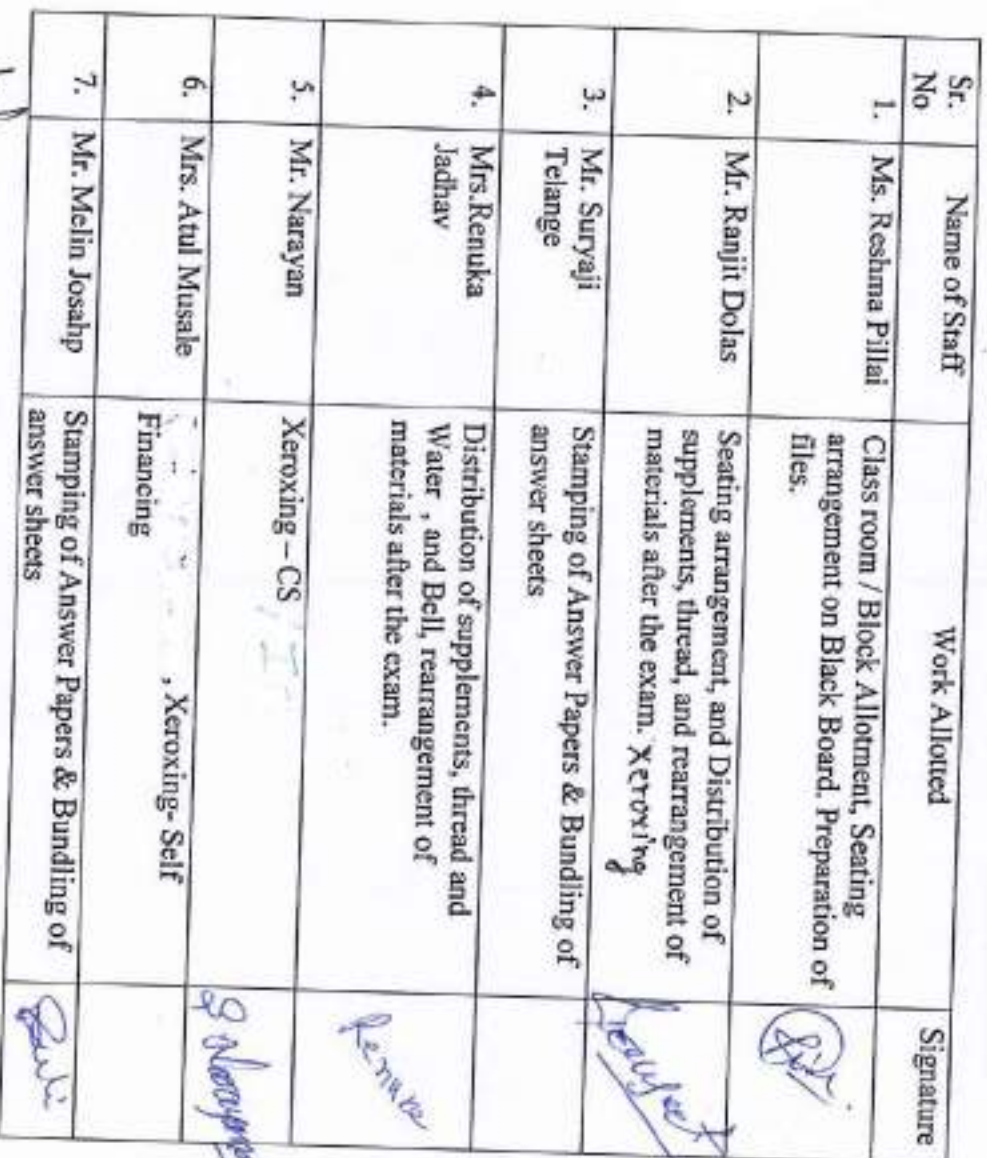 Sr. No
Name of Staff
Work Allotted
Signature
1.
Ms. Reshma Pillai
Class room / Block Allotment, Seating
arrangement on Black Board. Preparation of
files.
2.
Mr. Ranjit Dolas
Seating arrangement, and Distribution of
supplements, thread, and rearrangement of
materials after the exam. Xeroxing
3.
Mr. Suryaji
Telange
Stamping of Answer Papers & Bundling of
answer sheets
4.
Mrs.Renuka
Jadhav
Distribution of supplements, thread and
Water , and Bell, rearrangement of
materials after the exam.
5.
Mr. Narayan
Xeroxing – CS
6.
Mrs. Atul Musale
, Xeroxing- Self
Financing
7.
Mr. Melin Josahp
Stamping of Answer Papers & Bundling of
answer sheets